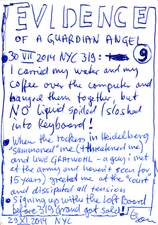 EVIDENCE
OF A GUARDIAN ANGEL
30 VII 2014 NYC 319: 9
I carried my water and my
coffee over the computer and
banged them together, but
NO liquid spilled/sloshed
into Keyboard!
When the takers in Heidelberg
"summoned" me (+ threatened me)
and Uwe GRATWOHL - a guy i met
at the army and haven't seen for
15 years), greeted me at the court
and dissipated all tension
Signing up with the Loft Board
before 319 Grand got sold!
29 XI 2014 NYC